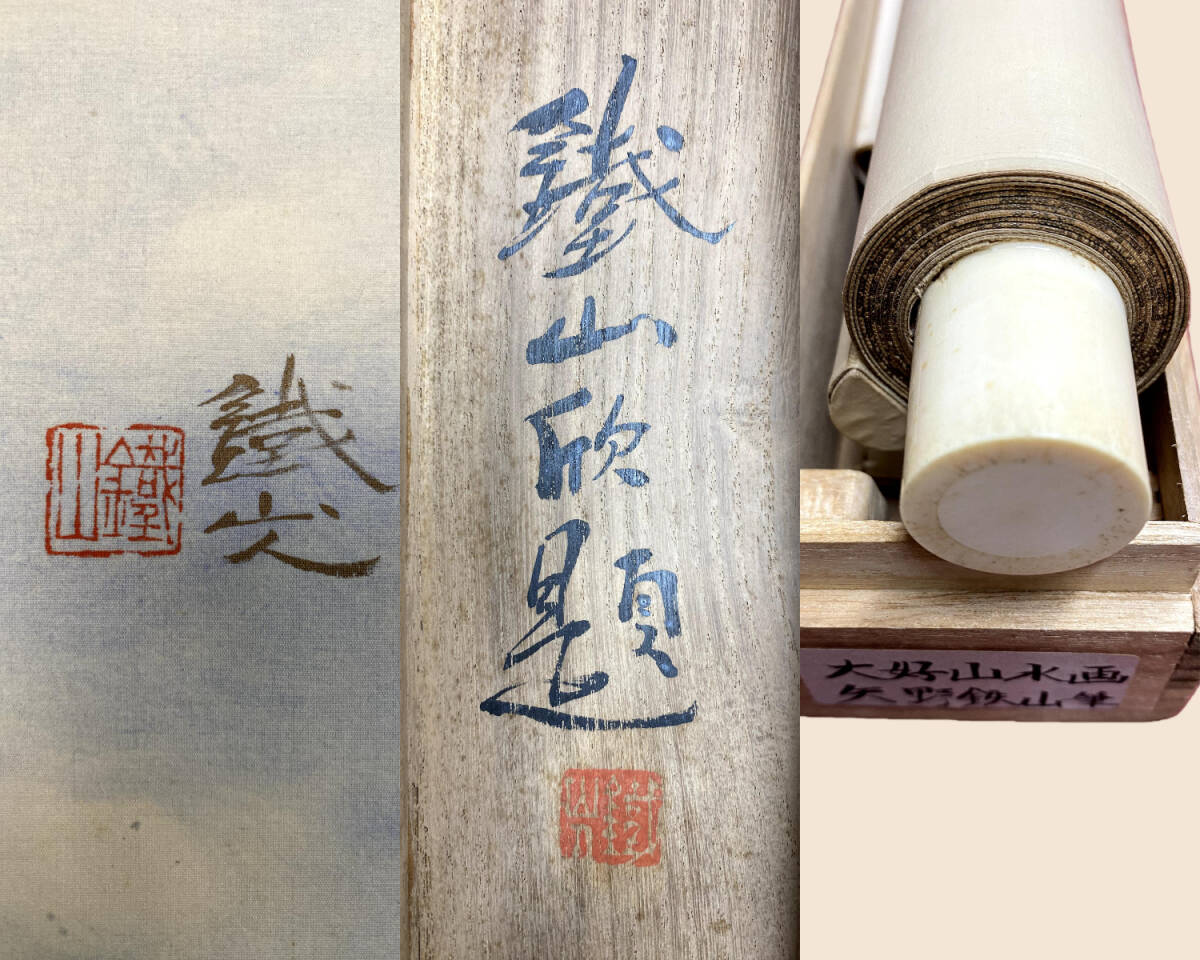 鐵山人
鐵山
鐵山欣題
大好山水画
矢野鉄山筆